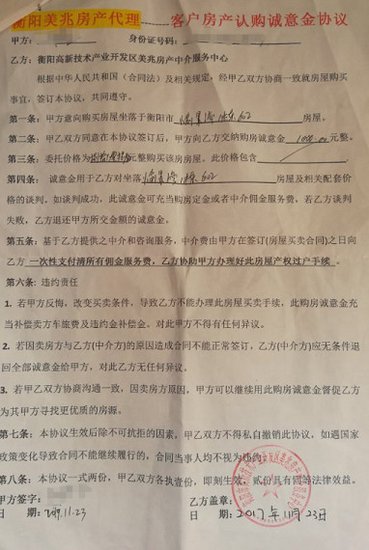 衡阳美兆房产代理 客户房产认购诚意金协议
甲方： 身份证号码：
乙方：衡阳高新技术产业开发区美兆房产中介服务中心
根据中华人民共和国《合同法》及相关规定，经甲乙双方协商一致就房屋购买
事宜，签订本协议，共同遵守。
第一条：甲方意向购买房屋坐落于衡阳市 602 房屋。
第二条：甲乙双方同意在本协议签订后，甲方向乙方交纳购房诚意金 元整。
第三条：委托价格为 元整购买该房房屋，此价格包含
第四条： 诚意金用于乙方对坐落 602 房屋及相关配套价
格的谈判，如谈判成功，此诚意金可充当购房定金或者中介佣金服务费，若乙方谈判
失败，乙方退还甲方所交金额的诚意金。
第五条：基于乙方提供之中介和咨询服务，中介费由甲方在签订(房屋买卖合同)之日向乙
方 一次性支付清所有佣金服务费，乙方协助甲方办理好此房屋产权过户手续 。
第六条：违约责任
1. 若甲方反悔，改变买卖条件，导致乙方不能办理此房屋买卖手续，此购房诚意金充
当补偿卖方车旅费及违约金补偿金。对此甲方不得有任何异议。
2. 若因卖房方与乙方(中介方)的原因造成合同不能正常签订，乙方(中介方)应无条件退
回全部诚意金给甲方，对此乙方无任何异议。
3. 若甲乙双方协商沟通一致，因卖房方原因，甲方可以继续用此购房诚意金督促乙方
为其甲方寻找更优质的房源。
第七条：本协议生效后除不可抗拒的因素，甲乙双方不得私自撤销此协议，如遇国家
政策变化导致合同不能继续履行的，合同当事人均不视为违约。
第八条：本协议一式两份，甲乙双方各执壹份，即刻生效，贰份具有同等法律效益。
甲方签字： 乙方盖章：
日 期： 11.23 日 期：2017年11月23日